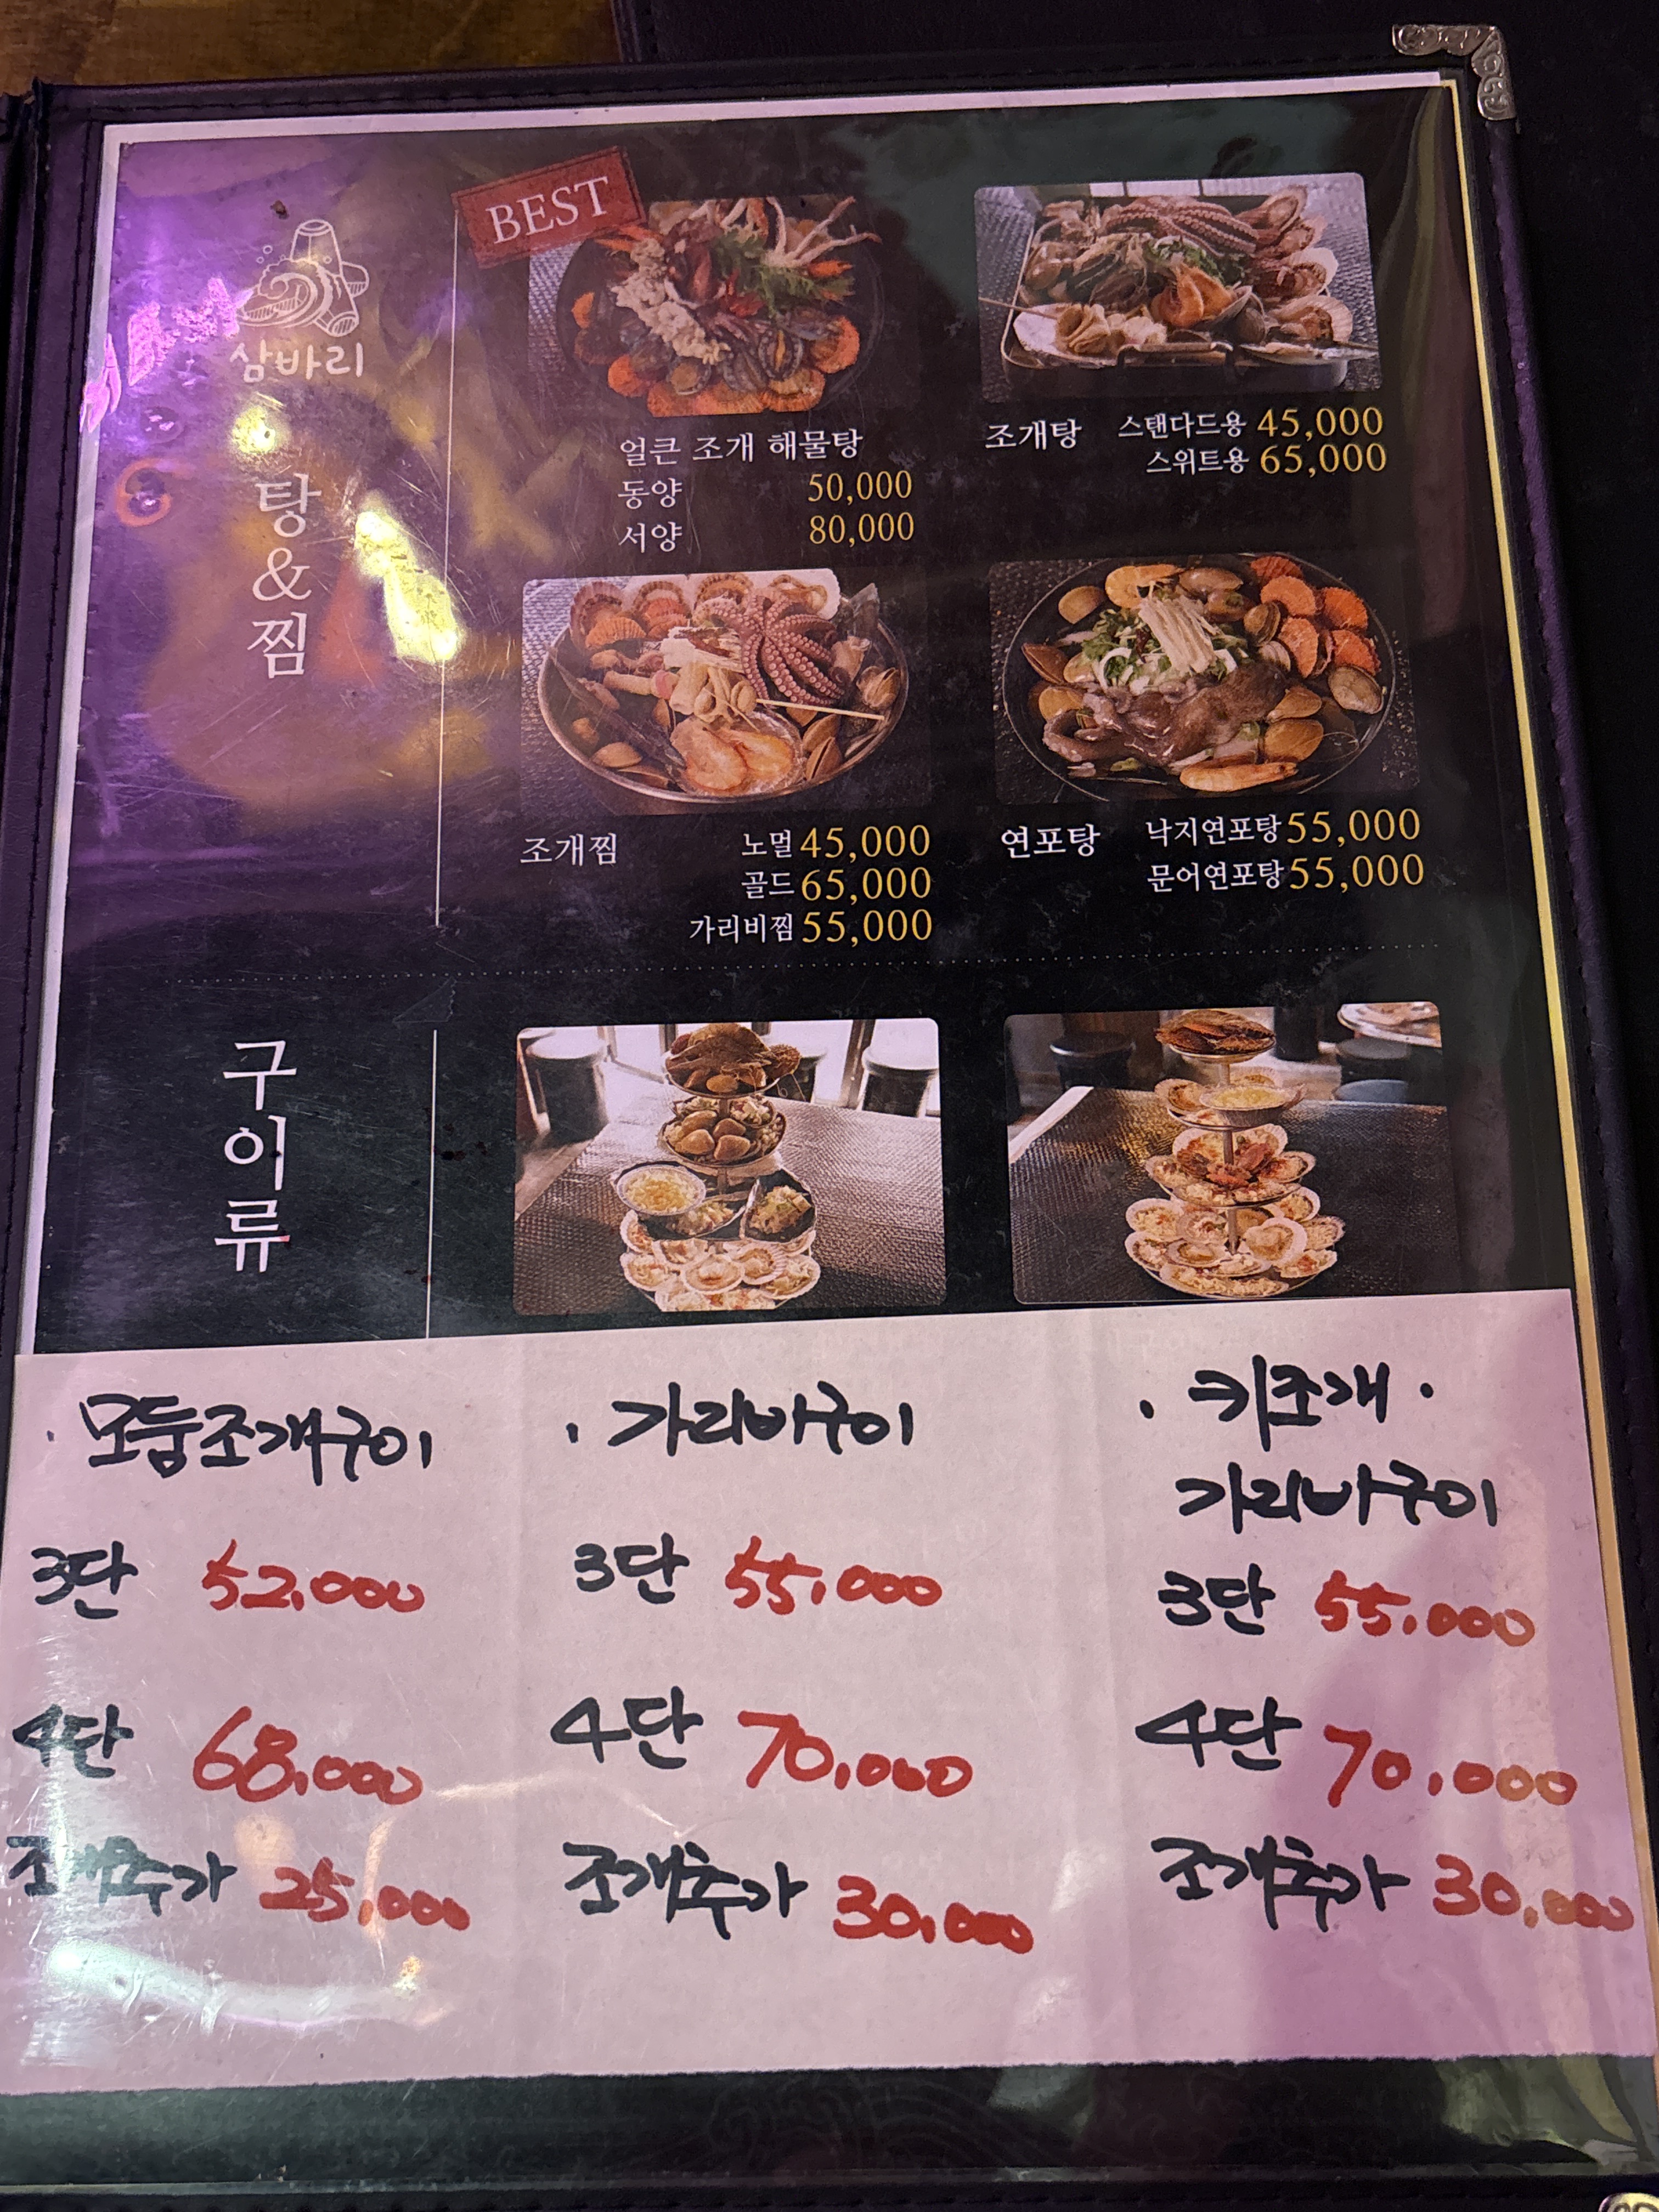 BEST
삼바리
탕
&
찜
얼큰 조개 해물탕
동양 50,000
서양 80,000
조개탕 스탠다드용 45,000
스위트용 65,000
조개찜 노멀 45,000
골드 65,000
가리비찜 55,000
연포탕 낙지연포탕 55,000
문어연포탕 55,000
구
이
류
· 모둠조개구이
3단 52,000
4단 68,000
조개추가 25,000
· 가리비구이
3단 55,000
4단 70,000
조개추가 30,000
· 키조개 ·
가리비구이
3단 55,000
4단 70,000
조개추가 30,000